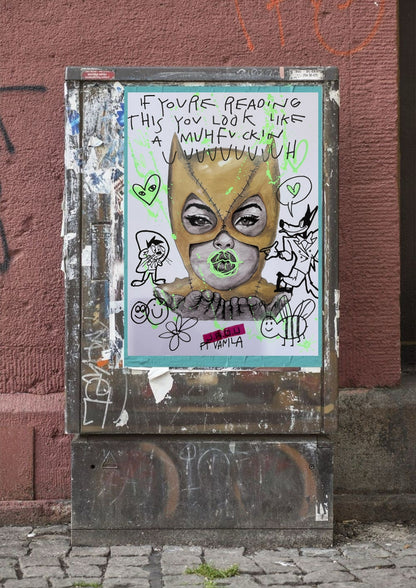 IF YOU'RE READING
THIS YOU LOOK LIKE
A MUHFUCKIN
UUUUUUUUUH
FT VAMILA